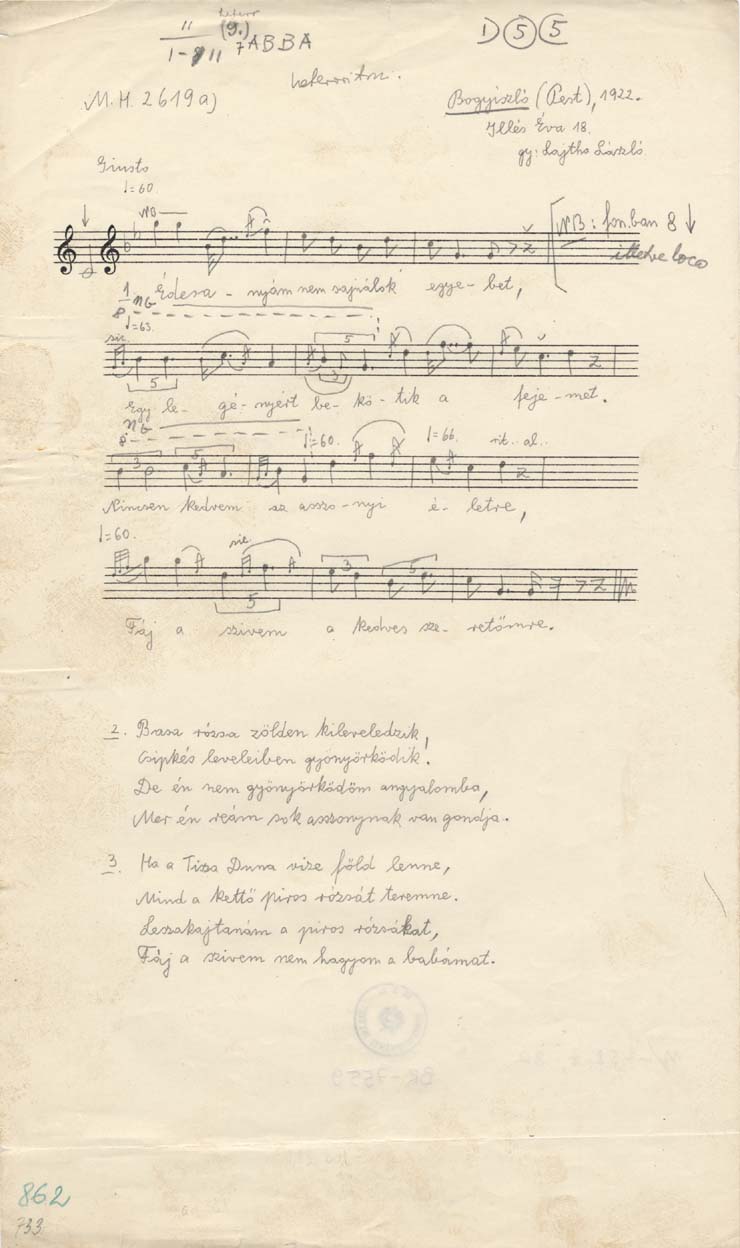 11 (9.)
1-8 11 7 ABBA
D 5 5
heterritm.
M.H. 2619a)
Bogyiszló (Pest), 1922.
Illés Éva 18.
gy: Lajtha László
Giusto
♩=60.
NB
NB: fon.ban 8 ↓
illetve loco
1 Édesa - nyám nem sajnálok egye - bet,
NB
8
♩=63.
sic
5
5
3
Egy le - gé - nyért be - kö - tik a feje - met.
NB
8
♩=60.
♩=66.
rit. al..
3
5
Nincsen kedvem az asszo - nyi é - letre,
♩=60.
sic
5
3
5
Fáj a szivem a kedves sze - retőmre.
2. Basa rózsa zölden kileveledzik,
Csipkés leveleiben gyönyörködik.
De én nem gyönyörködöm angyalomba,
Mer én reám sok asszonynak van gondja.
3. Ha a Tisza Duna vize föld lenne,
Mind a kettő piros rózsát teremne.
Leszakajtanám a piros rózsákat,
Fáj a szivem nem hagyom a babámat.
BR-7559
862
733